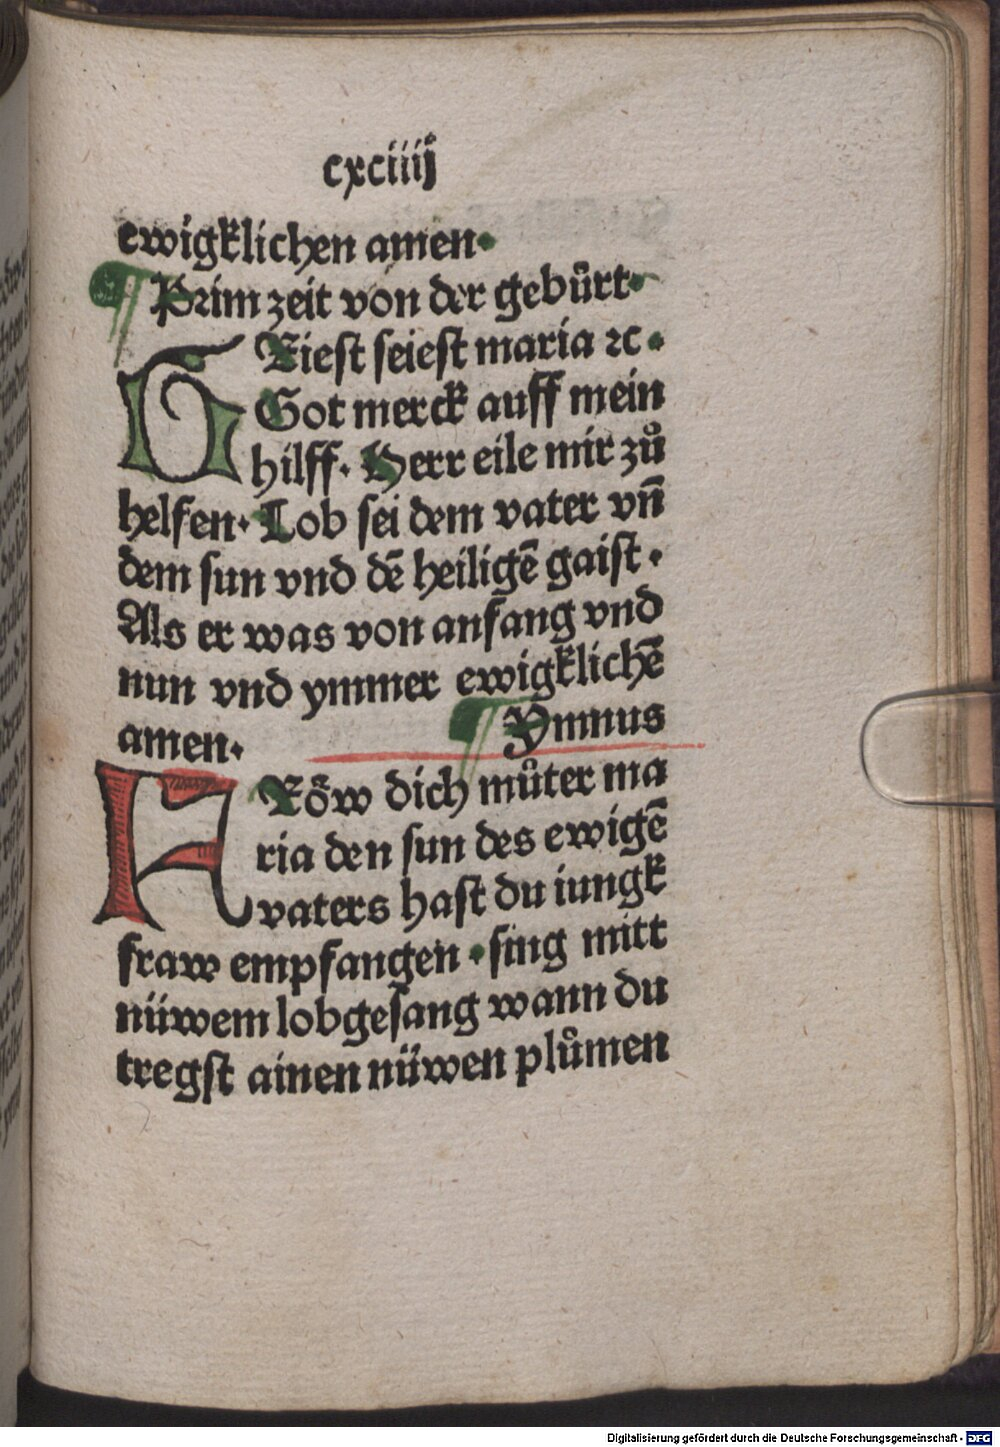 cxciiij
ewigklichen amen.
¶ Prim zeit von der gebůrt.
GRiest seiest maria ⁊c.
Got merck auff mein
hilff. Herr eile mir zů
helfen. Lob sei dem vater vn̄
dem sun vnd dē heiligē gaist.
Als er was von anfang vnd
nun vnd ymmer ewigklichē
amen. ¶ Ymnus
FRöw dich můter ma
ria den sun des ewigē
vaters hast du iungk
fraw empfangen . sing mitt
nüwem lobgesang wann du
tregst ainen nüwen plůmen
Digitalisierung gefördert durch die Deutsche Forschungsgemeinschaft - DFG